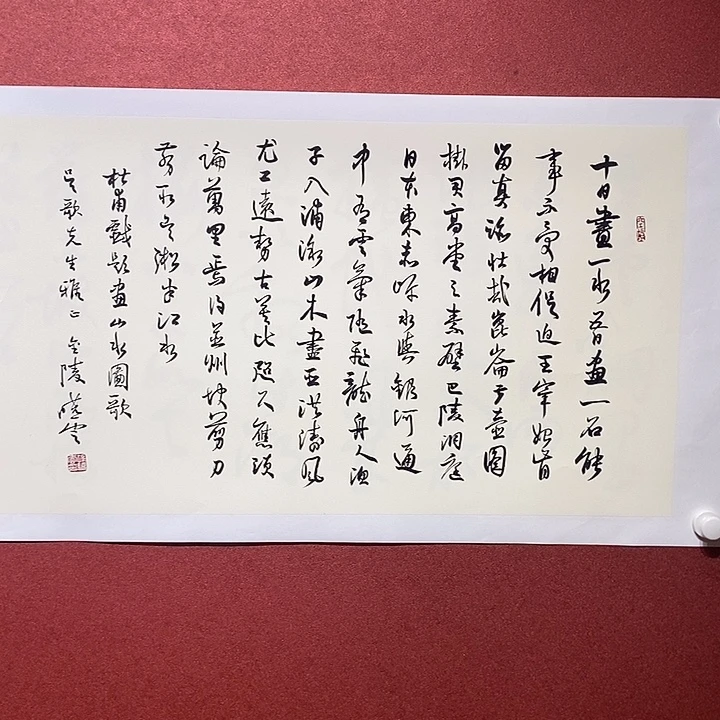 十日畫一水五日畫一石能
事不受相促迫王宰始肯
留真跡壯哉崑崙方壺圖
掛君高堂之素壁巴陵洞庭
日本東赤岸水與銀河通
中有雲氣隨飛龍舟人漁
子入浦溆山木盡亞洪濤風
尤工遠勢古莫比咫尺應須
論萬里焉得並州快剪刀
剪取吳淞半江水
杜甫戲題畫山水圖歌
吴歌先生雅正 金陵曉雲